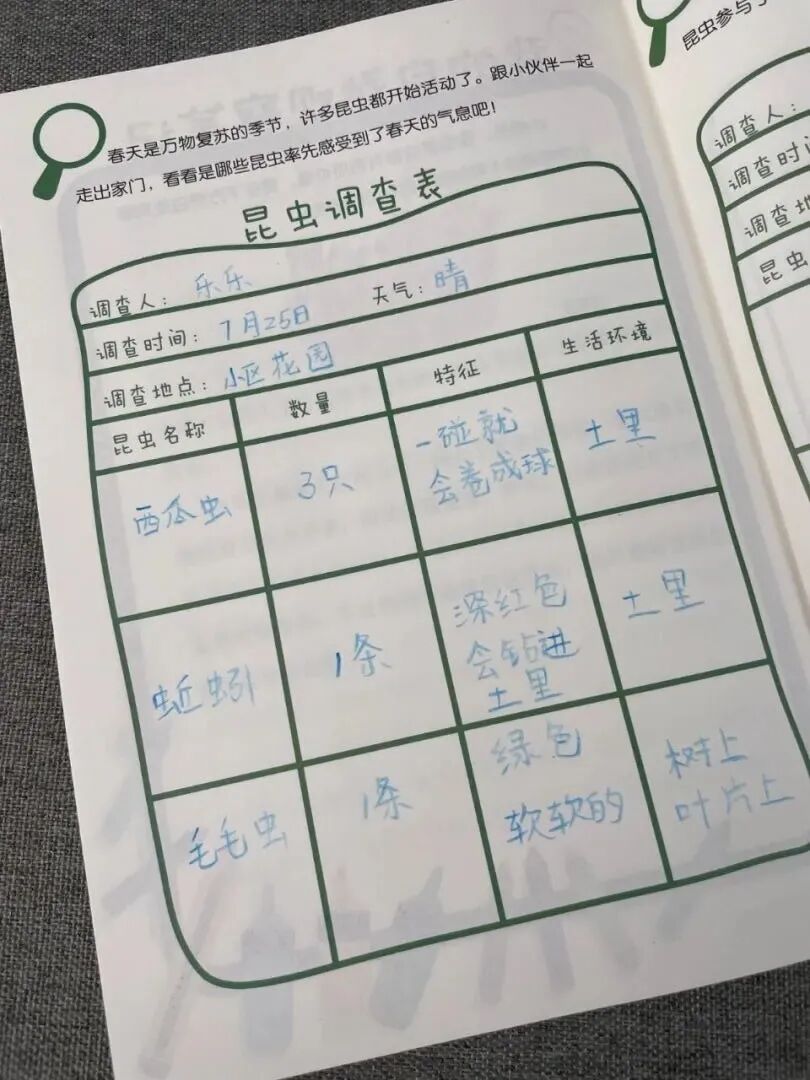 春天是万物复苏的季节，许多昆虫都开始活动了。跟小伙伴一起
走出家门，看看是哪些昆虫率先感受到了春天的气息吧！
昆虫调查表
调查人： 乐乐
调查时间： 7月25日 天气： 晴
调查地点： 小区花园
昆虫名称 数量 特征 生活环境
西瓜虫 3只 一碰就 土里
会卷成球
蚯蚓 1条 深红色 土里
会钻进
土里
毛毛虫 1条 绿色 树上
软软的 叶片上
昆虫参与了
调查人：
调查时间
调查地
昆虫